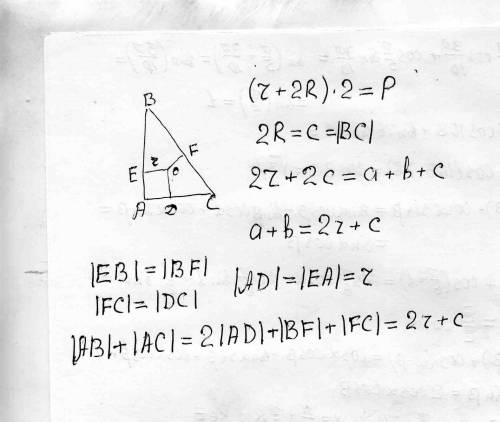 (r + 2R) · 2 = P
2R = C = |BC|
2r + 2c = a + b + c
a + b = 2r + c
B
r
F
E
o
A
D
C
|EB| = |BF|
|FC| = |DC|
|AD| = |EA| = r
|AB| + |AC| = 2|AD| + |BF| + |FC| = 2r + c